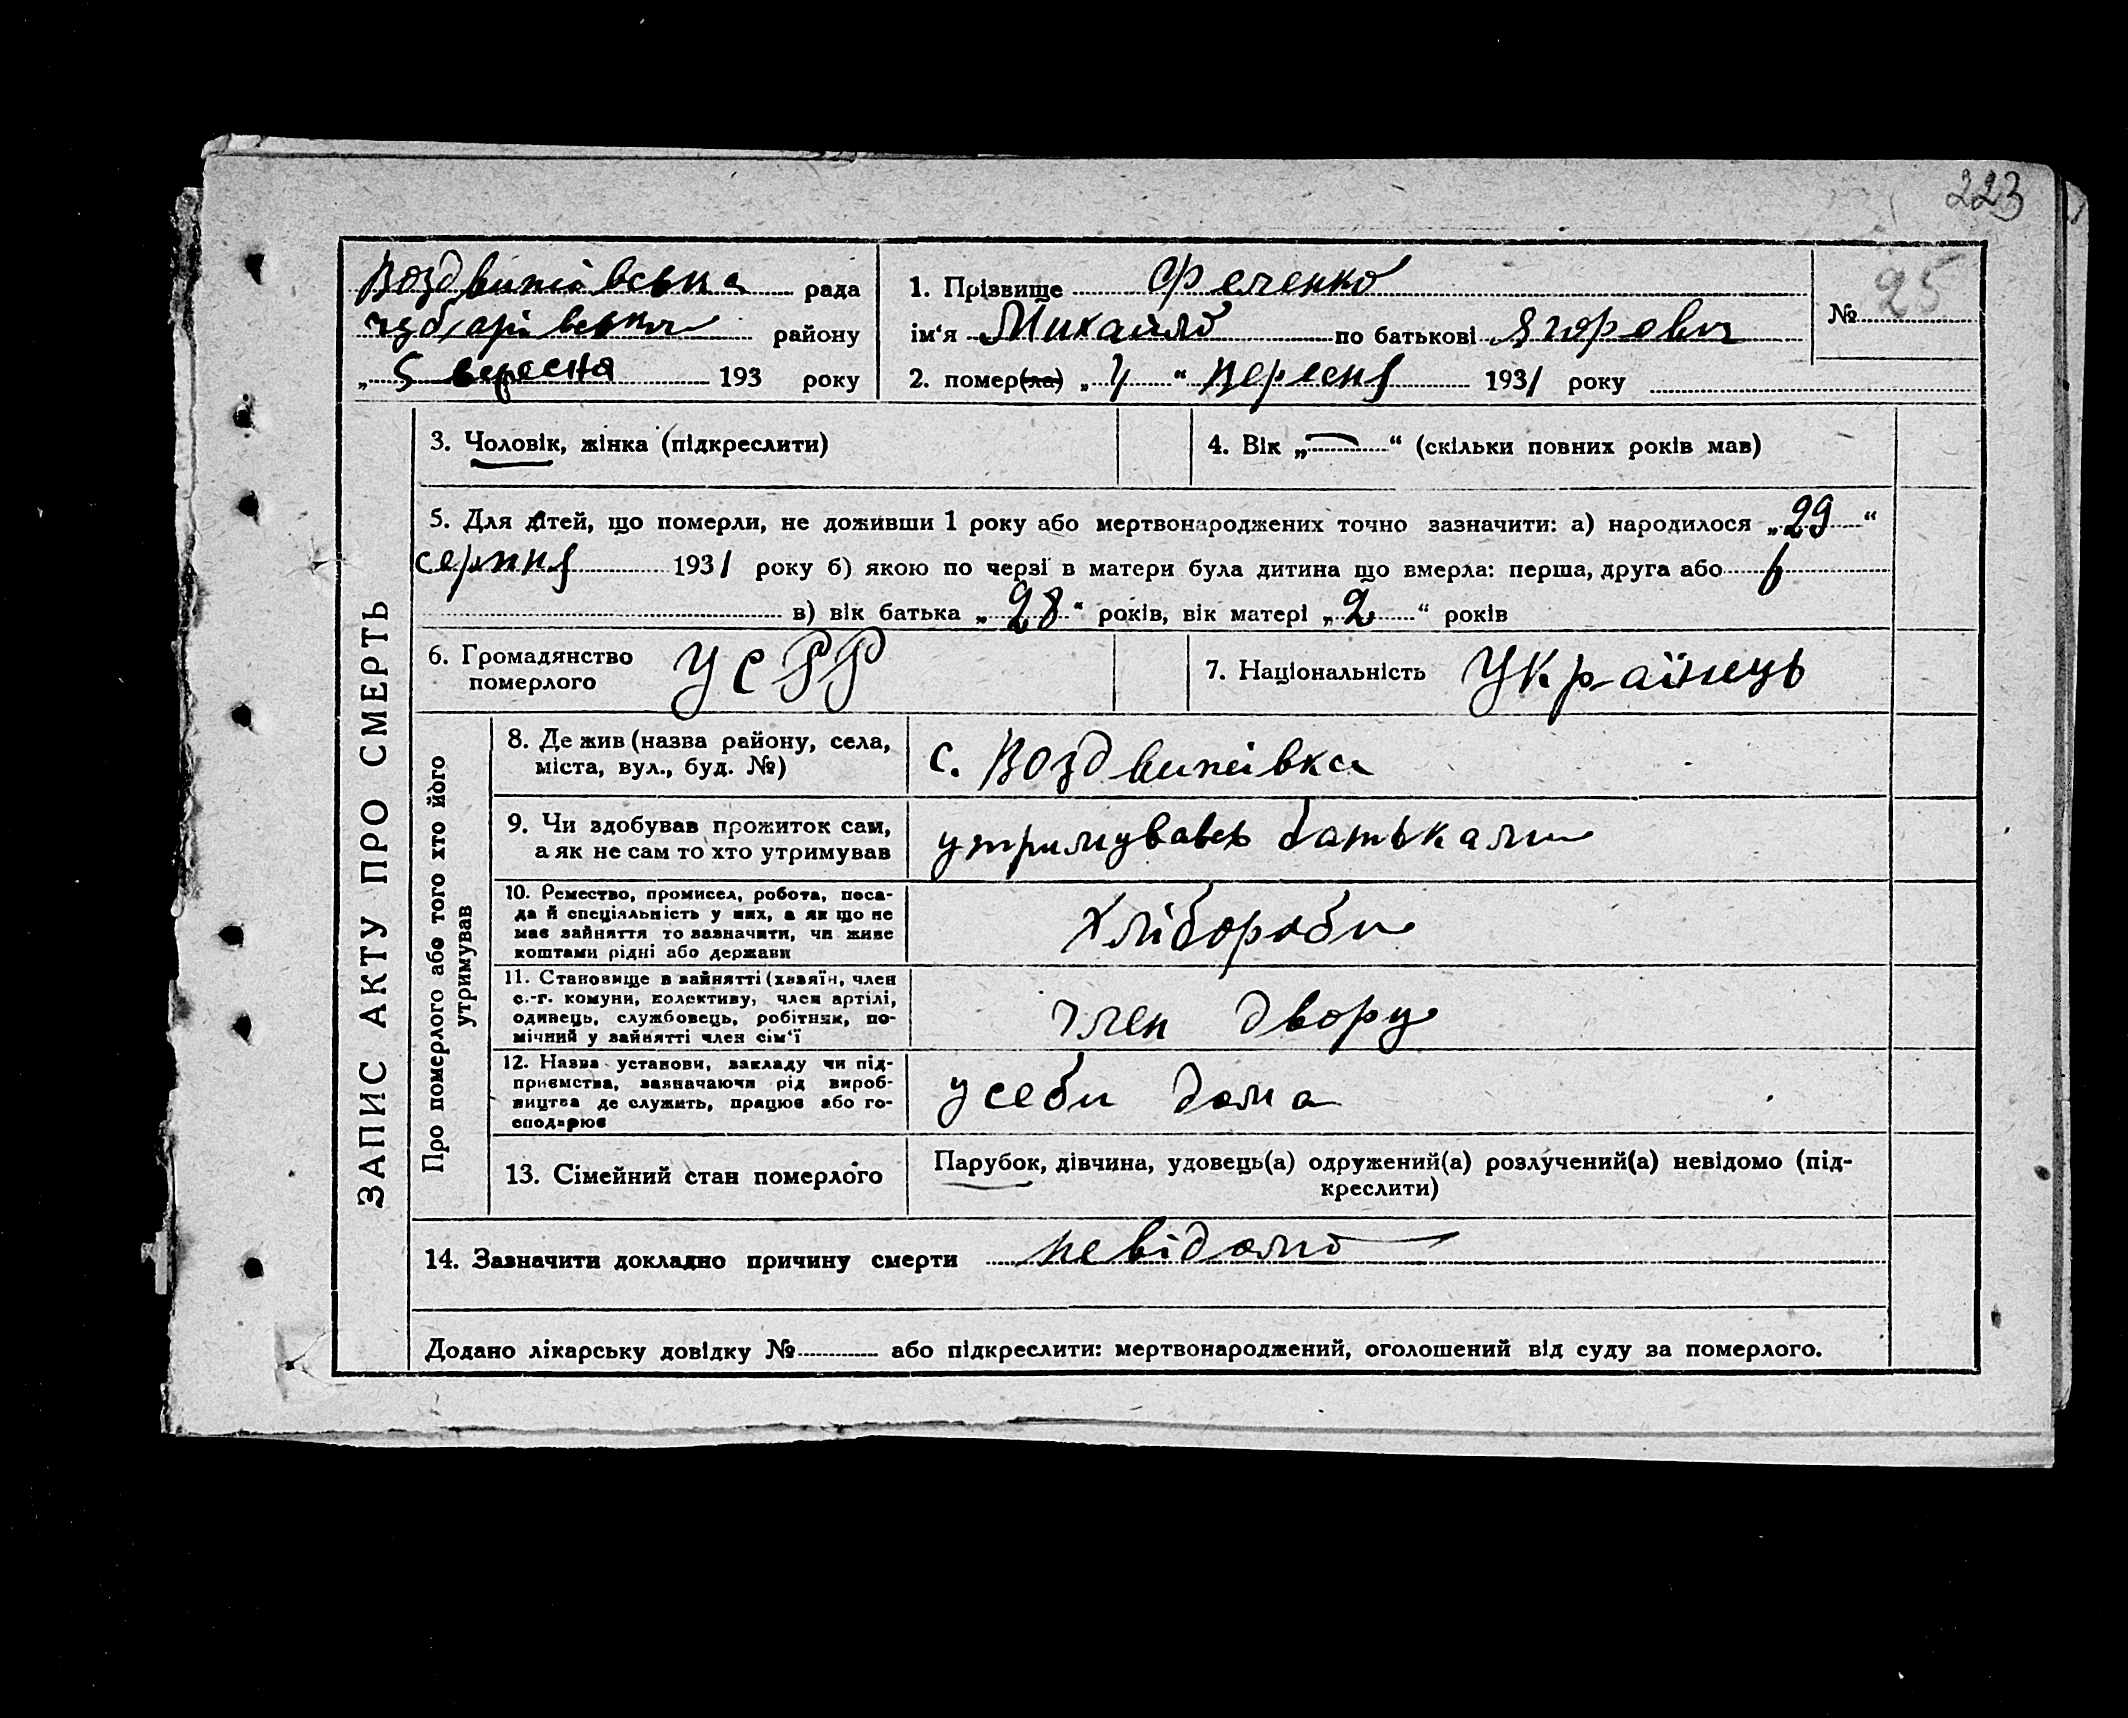 223
Воздвижівська рада
Чубарівськ району
„ 5 вересня 193 року
1. Прізвище Фесенко
ім'я Михайло по батькові Ягоревич
№ 25
2. помер(ла) „ 4 “ вересня 1931 року
ЗАПИС АКТУ ПРО СМЕРТЬ
3. Чоловік, жінка (підкреслити)
4. Вік „ — “ (скільки повних років мав)
5. Для дітей, що померли, не доживши 1 року або мертвонароджених точно зазначити: а) народилося „ 29 “
серпня 1931 року б) якою по черзі в матери була дитина що вмерла: перша, друга або
в) вік батька „ 28 “ років, вік матері „ 2 “ років
6. Громадянство
померлого
УСРР
7. Національність Українець
Про померлого або того хто його
утримував
8. Де жив (назва району, села,
міста, вул., буд. №)
с. Воздвижівка
9. Чи здобував прожиток сам,
а як не сам то хто утримував
утримувавсь батьками
10. Ремество, промисел, робота, поса-
да й спеціяльність у них, а як що не
має зайняття то зазначити, чи живе
коштами рідні або держави
Хлібороби
11. Становище в зайнятті (хазяїн, член
с.-г. комуни, колективу, член артілі,
одинець, службовець, робітник, по-
мічний у зайнятті член сім'ї
член двору
12. Назва установи, закладу чи під-
приємства, зазначаючи рід вироб-
ництва де служить, працює або го-
сподарює
у себи дома
13. Сімейний стан померлого
Парубок, дівчина, удовець(а) одружений(а) розлучений(а) невідомо (під-
креслити)
14. Зазначити докладно причину смерти невідомо
Додано лікарську довідку № або підкреслити: мертвонароджений, оголошений від суду за померлого.